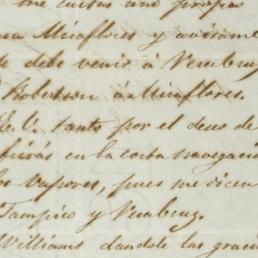 me
uno propio
Miraflores y
debe venir á Veracruz
Robertson á Miraflores.
E. V. tanto por el deseo de
en la corta navegació
vapores, pues me dicen
Tampico y Veracruz.
Williams dandole las gracia